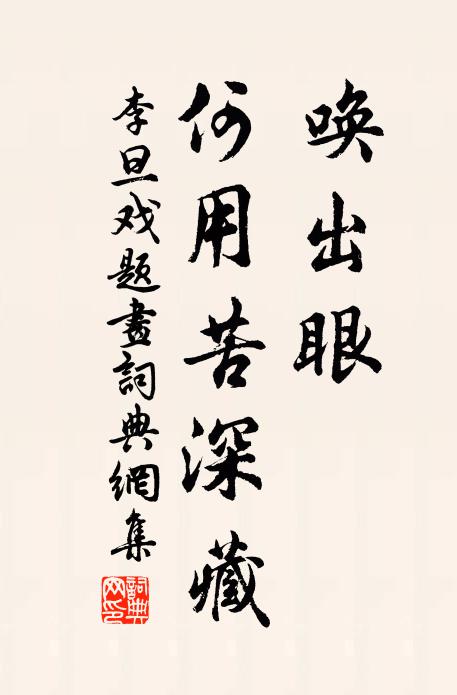 唤出眼
何用苦深藏
李旦戏题畫詞典網集
詞典网印